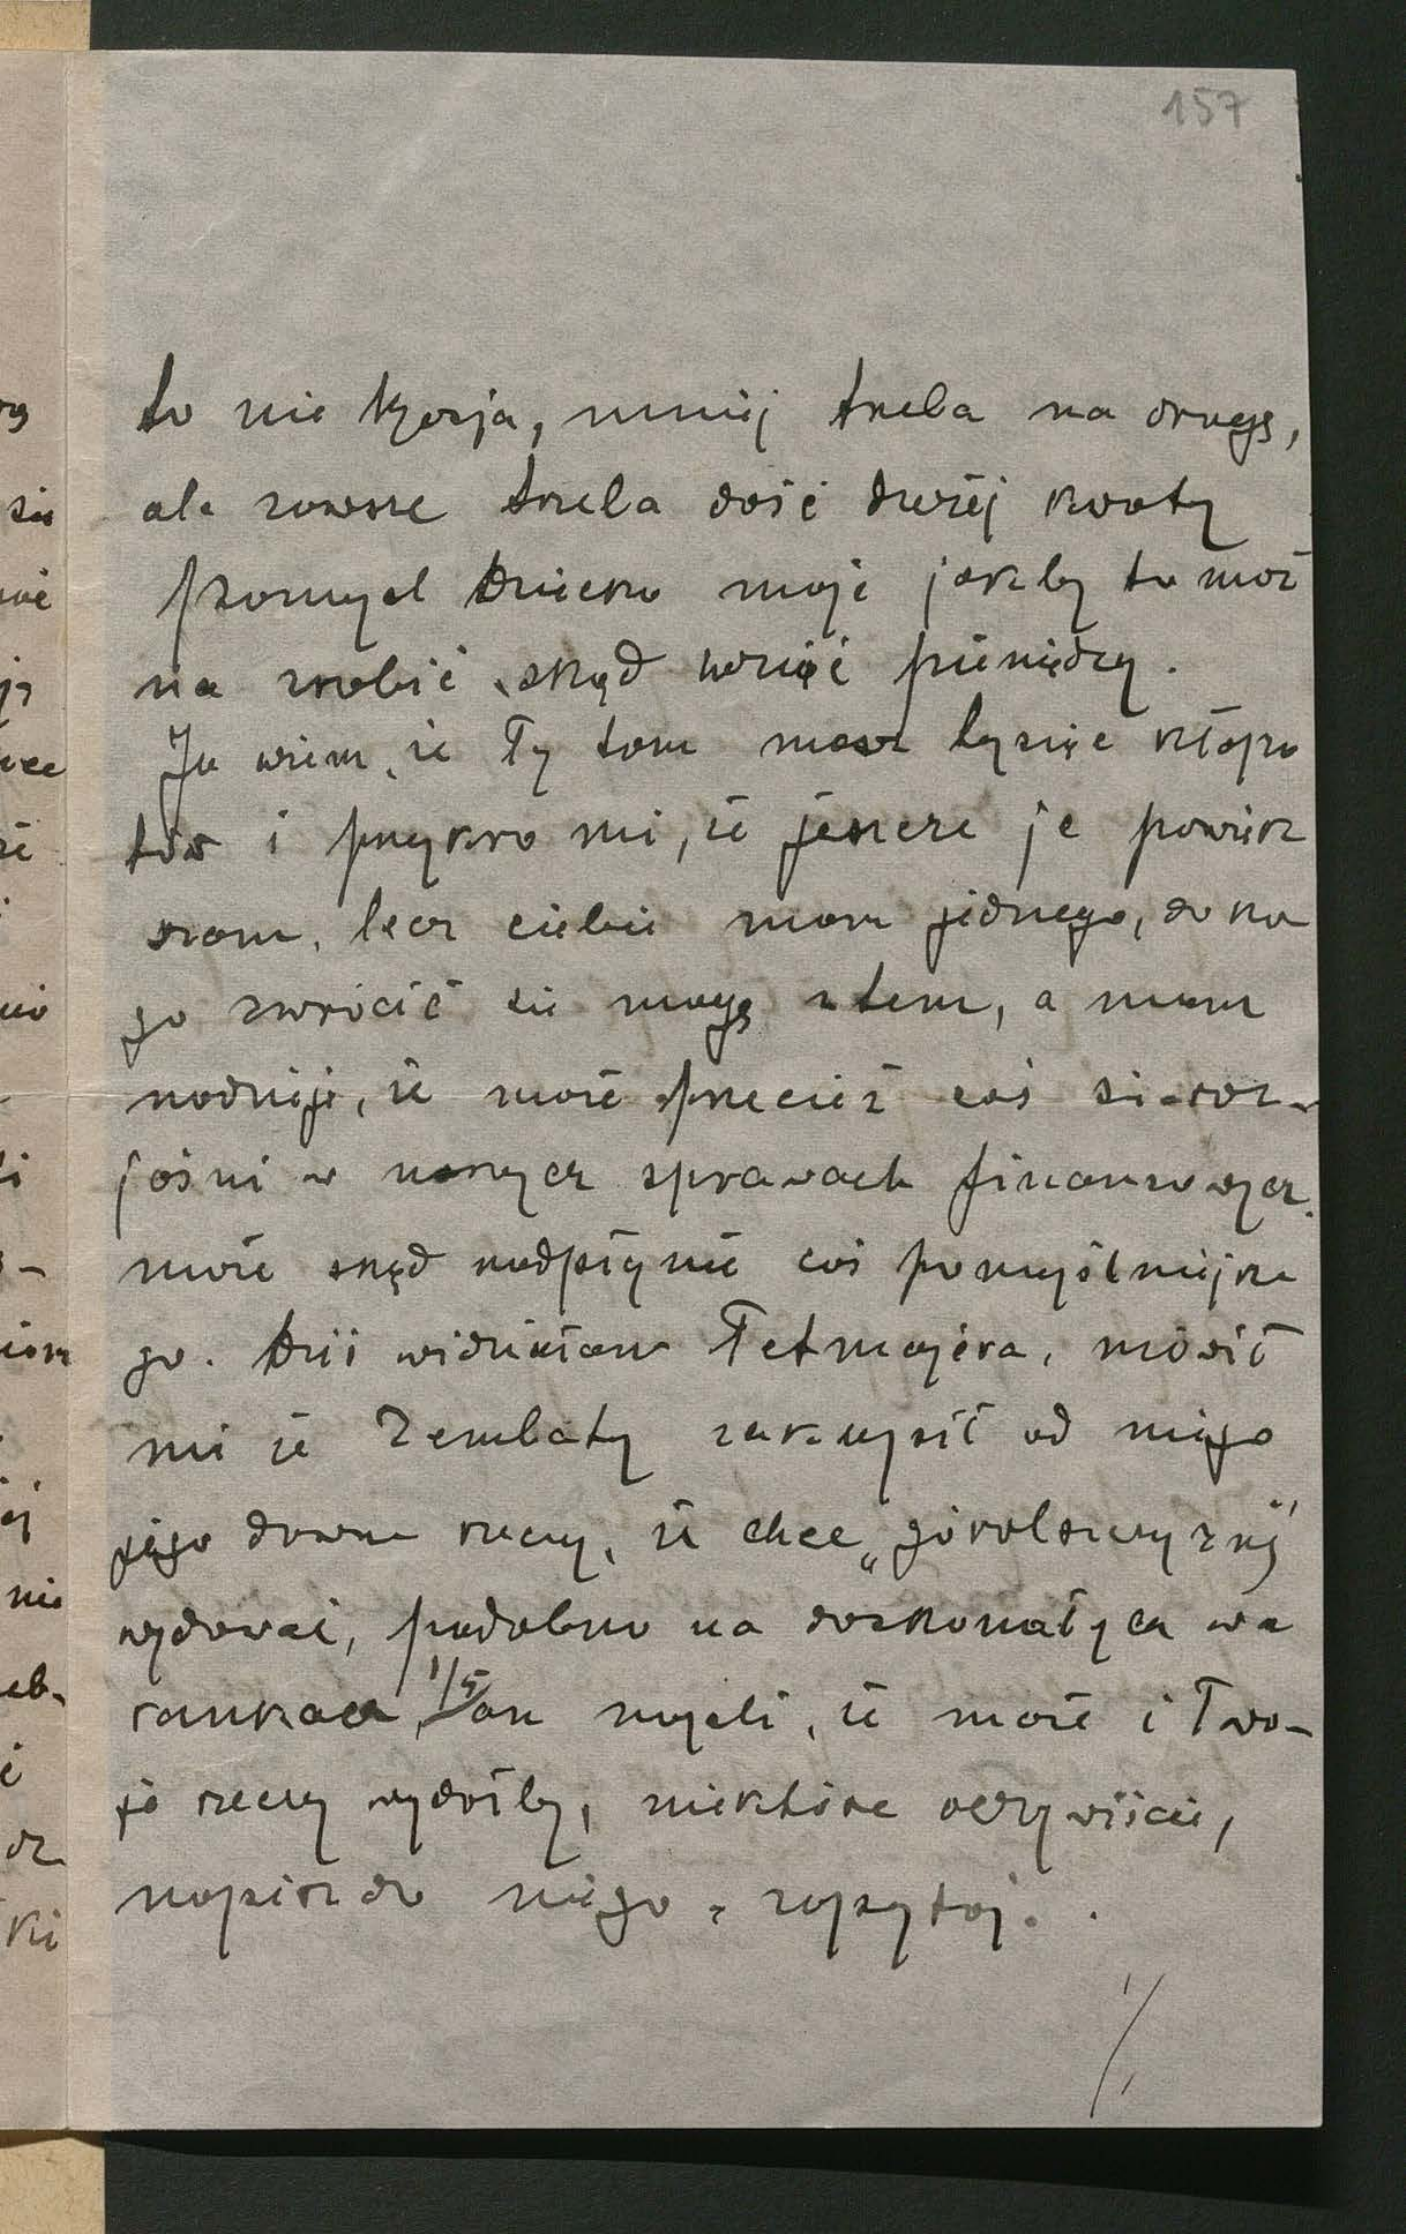 157
to nie Kzesja, mniej trzeba na drogę,
ale zawsze trzeba dość dużej kwoty
pzomyśl Dziecko moje jakby to moż
na zrobić, skąd wziąć pieniędzy.
Ja wiem, że Ty tam masz tysiące kłopo
tów i przykro mi, że jeszcze je powięk
szam, lecz ciebie mam jednego, do ko
go zwrócić się mogę z tem, a mam
nadzieję, że może przecież coś się roz-
jaśni w naszych sprawach finansowych.
może skąd nadpłynie coś pomyślniejsze
go. Dziś widziałam Tetmajera, mówił
mi że Zembaty zakupił od niego
jego dawne rzeczy, że chce „góralszczyznę"
wydawać, podobno na doskonałych wa
runkach, 1/5 on myśli, że może i Two-
je rzeczy wydałby, niektóre oczywiście,
napisz do niego z zapytaj.